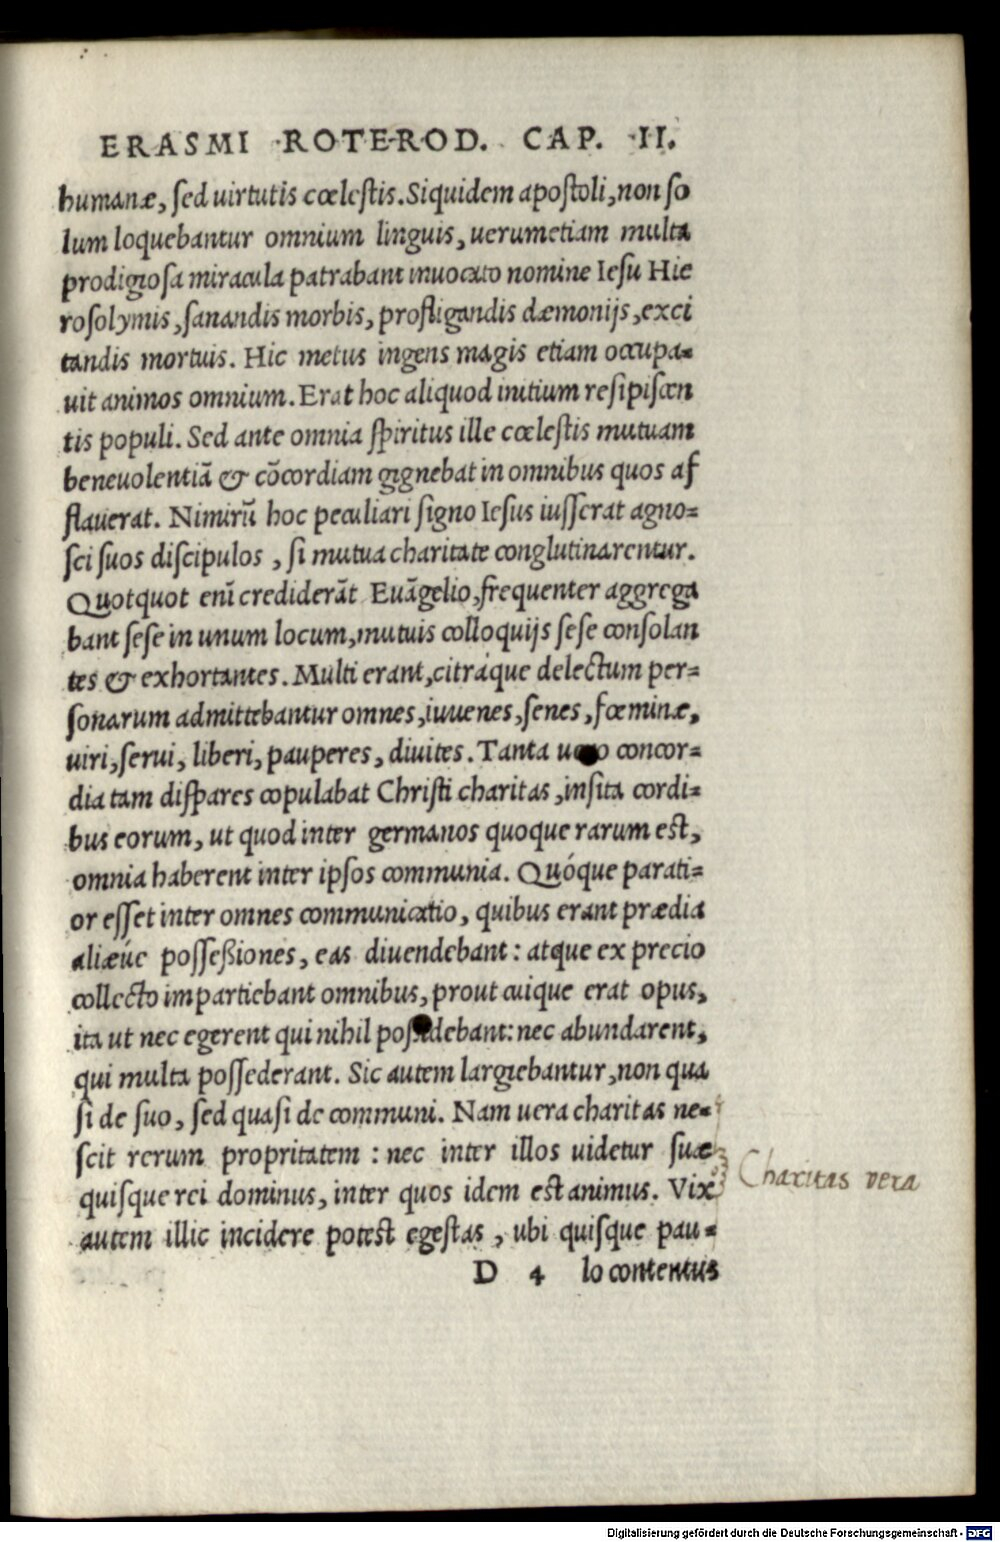 ERASMI ROTEROD. CAP. II.
humanæ, sed uirtutis cœlestis. Siquidem apostoli, non so
lum loquebantur omnium linguis, uerumetiam multa
prodigiosa miracula patrabant inuocato nomine Iesu Hie
rosolymis, sanandis morbis, profligandis dæmonijs, exci
tandis mortuis. Hic metus ingens magis etiam occupa=
uit animos omnium. Erat hoc aliquod initium resipiscen
tis populi. Sed ante omnia spiritus ille cœlestis mutuam
beneuolentiã & cõcordiam gignebat in omnibus quos af
flauerat. Nimirũ hoc peculiari signo Iesus iusserat agno=
sci suos discipulos, si mutua charitate conglutinarentur.
Quotquot enĩ crediderãt Euãgelio, frequenter aggrega
bant sese in unum locum, mutuis colloquijs sese consolan
tes & exhortantes. Multi erant, citráque delectum per=
sonarum admittebantur omnes, iuuenes, senes, fœminæ,
uiri, serui, liberi, pauperes, diuites. Tanta concor=
dia tam dispares copulabat Christi charitas, insita cordi=
bus eorum, ut quod inter germanos quoque rarum est,
omnia haberent inter ipsos communia. Quóque parati=
or esset inter omnes communicatio, quibus erant prædia
aliæúe posseßiones, eas diuendebant: atque ex precio
collecto impartiebant omnibus, prout cuique erat opus,
ita ut nec egerent qui nihil possidebant: nec abundarent,
qui multa possederant. Sic autem largiebantur, non qua
si de suo, sed quasi de communi. Nam uera charitas ne=
scit rerum propritatem: nec inter illos uidetur suæ
quisque rei dominus, inter quos idem est animus. Vix
autem illic incidere potest egestas, ubi quisque pau=
D 4 lo contentus
Charitas vera
Digitalisierung gefördert durch die Deutsche Forschungsgemeinschaft - DFG